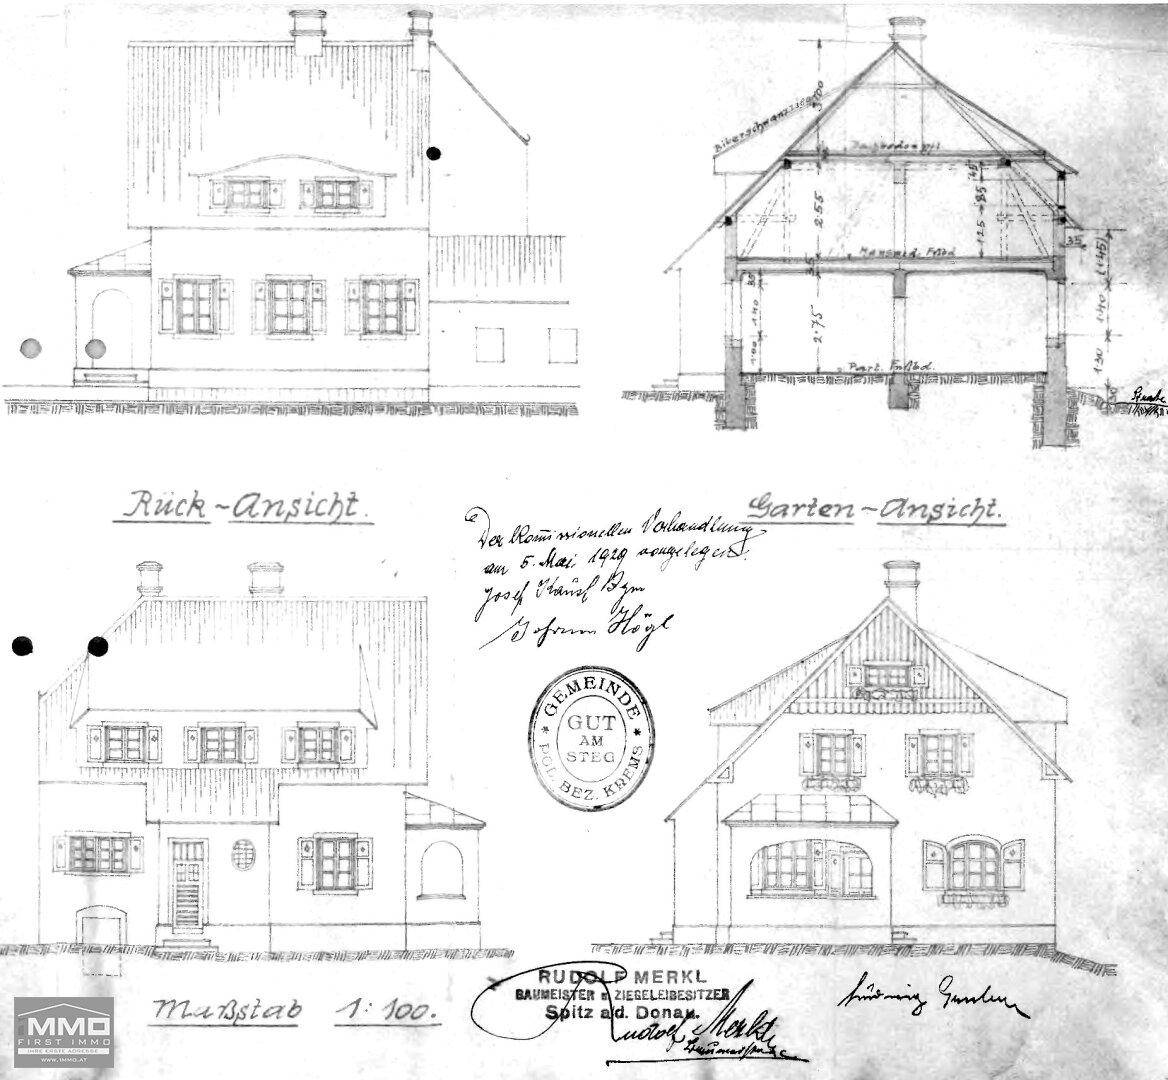 Biberschwanzziegel
3.00
Dachboden
45
2.55
1.85
1.25
Mansard. Fssbd
35
35
(1.45)
35
1.40
1.40
2.75
1.30
Part. Fssbd.
Rück-Ansicht.
Garten-Ansicht.
Der kommissionellen Verhandlung
am 5. Mai 1929 vorgelegen.
Josef
Johann Högl
GEMEINDE
GUT
AM
STEG
POL. BEZ. KREMS
Maßstab 1:100.
RUDOLF MERKL
BAUMEISTER u. ZIEGELEIBESITZER
Spitz a/d. Donau.
Rudolf Merkl
Baumeister
Ludwig
IMMO
FIRST IMMO
IHRE ERSTE ADRESSE
WWW.IMMO.AT